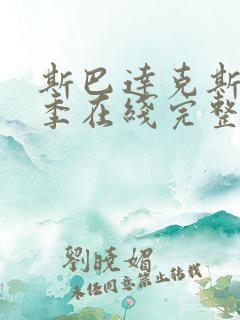 斯巴達克斯
季在綫完整
劉曉媚
未經同意禁止轉載